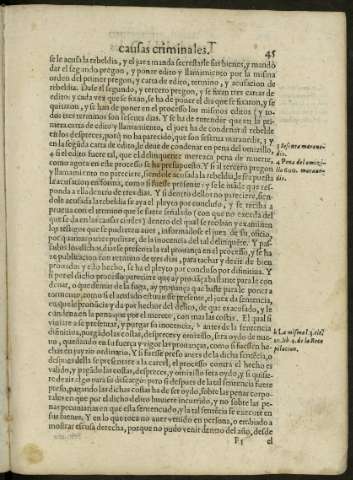 causas criminales.
45
se le acusa la rebeldia, y el juez manda secrestarle sus bienes, y mandò
dar el segundo pregon, y poner edito y llamamiento por la misma
orden del primer pregon, y carta de edito, termino, y acusacion de
rebeldia. Dase el segundo, y tercero pregon, y se fixan tres cartas de
editos: y cada vez que se fixan, se ha de poner el dia que se fixaron, y se
quitaron, y se han de poner en el processo los mismos editos: y to
dos tres terminos son sesenta dias. Y se ha de entender que en la pri-
mera carta de edito y llamamiento, el juez ha de condenar al rebelde
en los despreces, porq no ha parecido, que son sesenta marauedis, 3 y
en la segũda carta de edito, le deue de condenar en pena del omizillo
4 si el edito fuere tal, que el delinquente merezca pena de muerte,
como agora en este processo se ha presupuesto. Y si al tercero pregon
y llamamiento no pareciere, siendole acusada la rebeldia, le sea puesta
la acusacion en forma, como si fuesse presente: y se le mãde que res-
ponda a ella dentro de tres dias. Y si dentro dellos no pareciere, sien-
dole acusada la rebeldia se aya el pleyto por concluso, y se reciba a
prueua con el termino que le fuere señalado (con que no exceda del
que se da en las causas ciuiles) dentro del qual se reciban y examinen
los testigos que se pudieren auer, informãdose el juez de su oficio,
por quantas partes pudiere, de la inocencia del tal delinquẽte. Y pas-
sados los dichos dias se presenta la tal prouança en el processo, y se ha
ze publicacion con termino de tres dias, para tachar y dezir de bien
prouado: y esto hecho, se ha el pleyto por concluso por difinitiua. Y
si por el dicho processo pareciere que ay prouãça bastante para le con
denar, o quedemas de la fuga, ay prouança que baste para le poner a
tormento, como si el acusado estuuiesse presente, el juez da sentencia,
en que le pronũcia y da por hechor del delito, de que es acusado, y le
condena en la pena que por el merece, con mas las costas. Y si el qual si
viniere a se presentar, y purgar su inocencia, 5 antes de la sentencia
difinitiua, purgãdo las costas, desprecez y omizillo, sera oydo de nue-
uo, quedando en su fuerça y vigor las prouanças, como si fuessen he-
chas en juyzio ordinario. Y si fuesse preso antes de la dicha sentẽcia, o
despues della se presentare a la carcel, el processo contra el hecho es
valido, y pagãdo las costas, desprecez, y omizillo sera oydo, y si quisie-
re dezir algo para su descargo: pero si despues de la tal sentencia fuere
preso, pagando las dichas costas ha de ser oydo, sobre las penas corpo-
rales en que por el dicho delito huuiere incurrido, y no sobre las pe-
nas pecuniarias en que esta sentenciado, y la tal sentẽcia se execute en
sus bienes. Y en lo que toca no auer venido en persona, o embiado a
mostrar escusa derecha, porque no pudo venir dentro del año, desde
3 Sesenta maraue-
dis.
4 Pena del omizi-
llo
5 La misma l. 3. del
tit. lib. 4. de la Reco
pilacion.
F 5
el